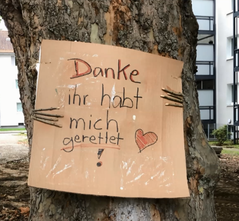 Danke
ihr habt
mich
gerettet
!